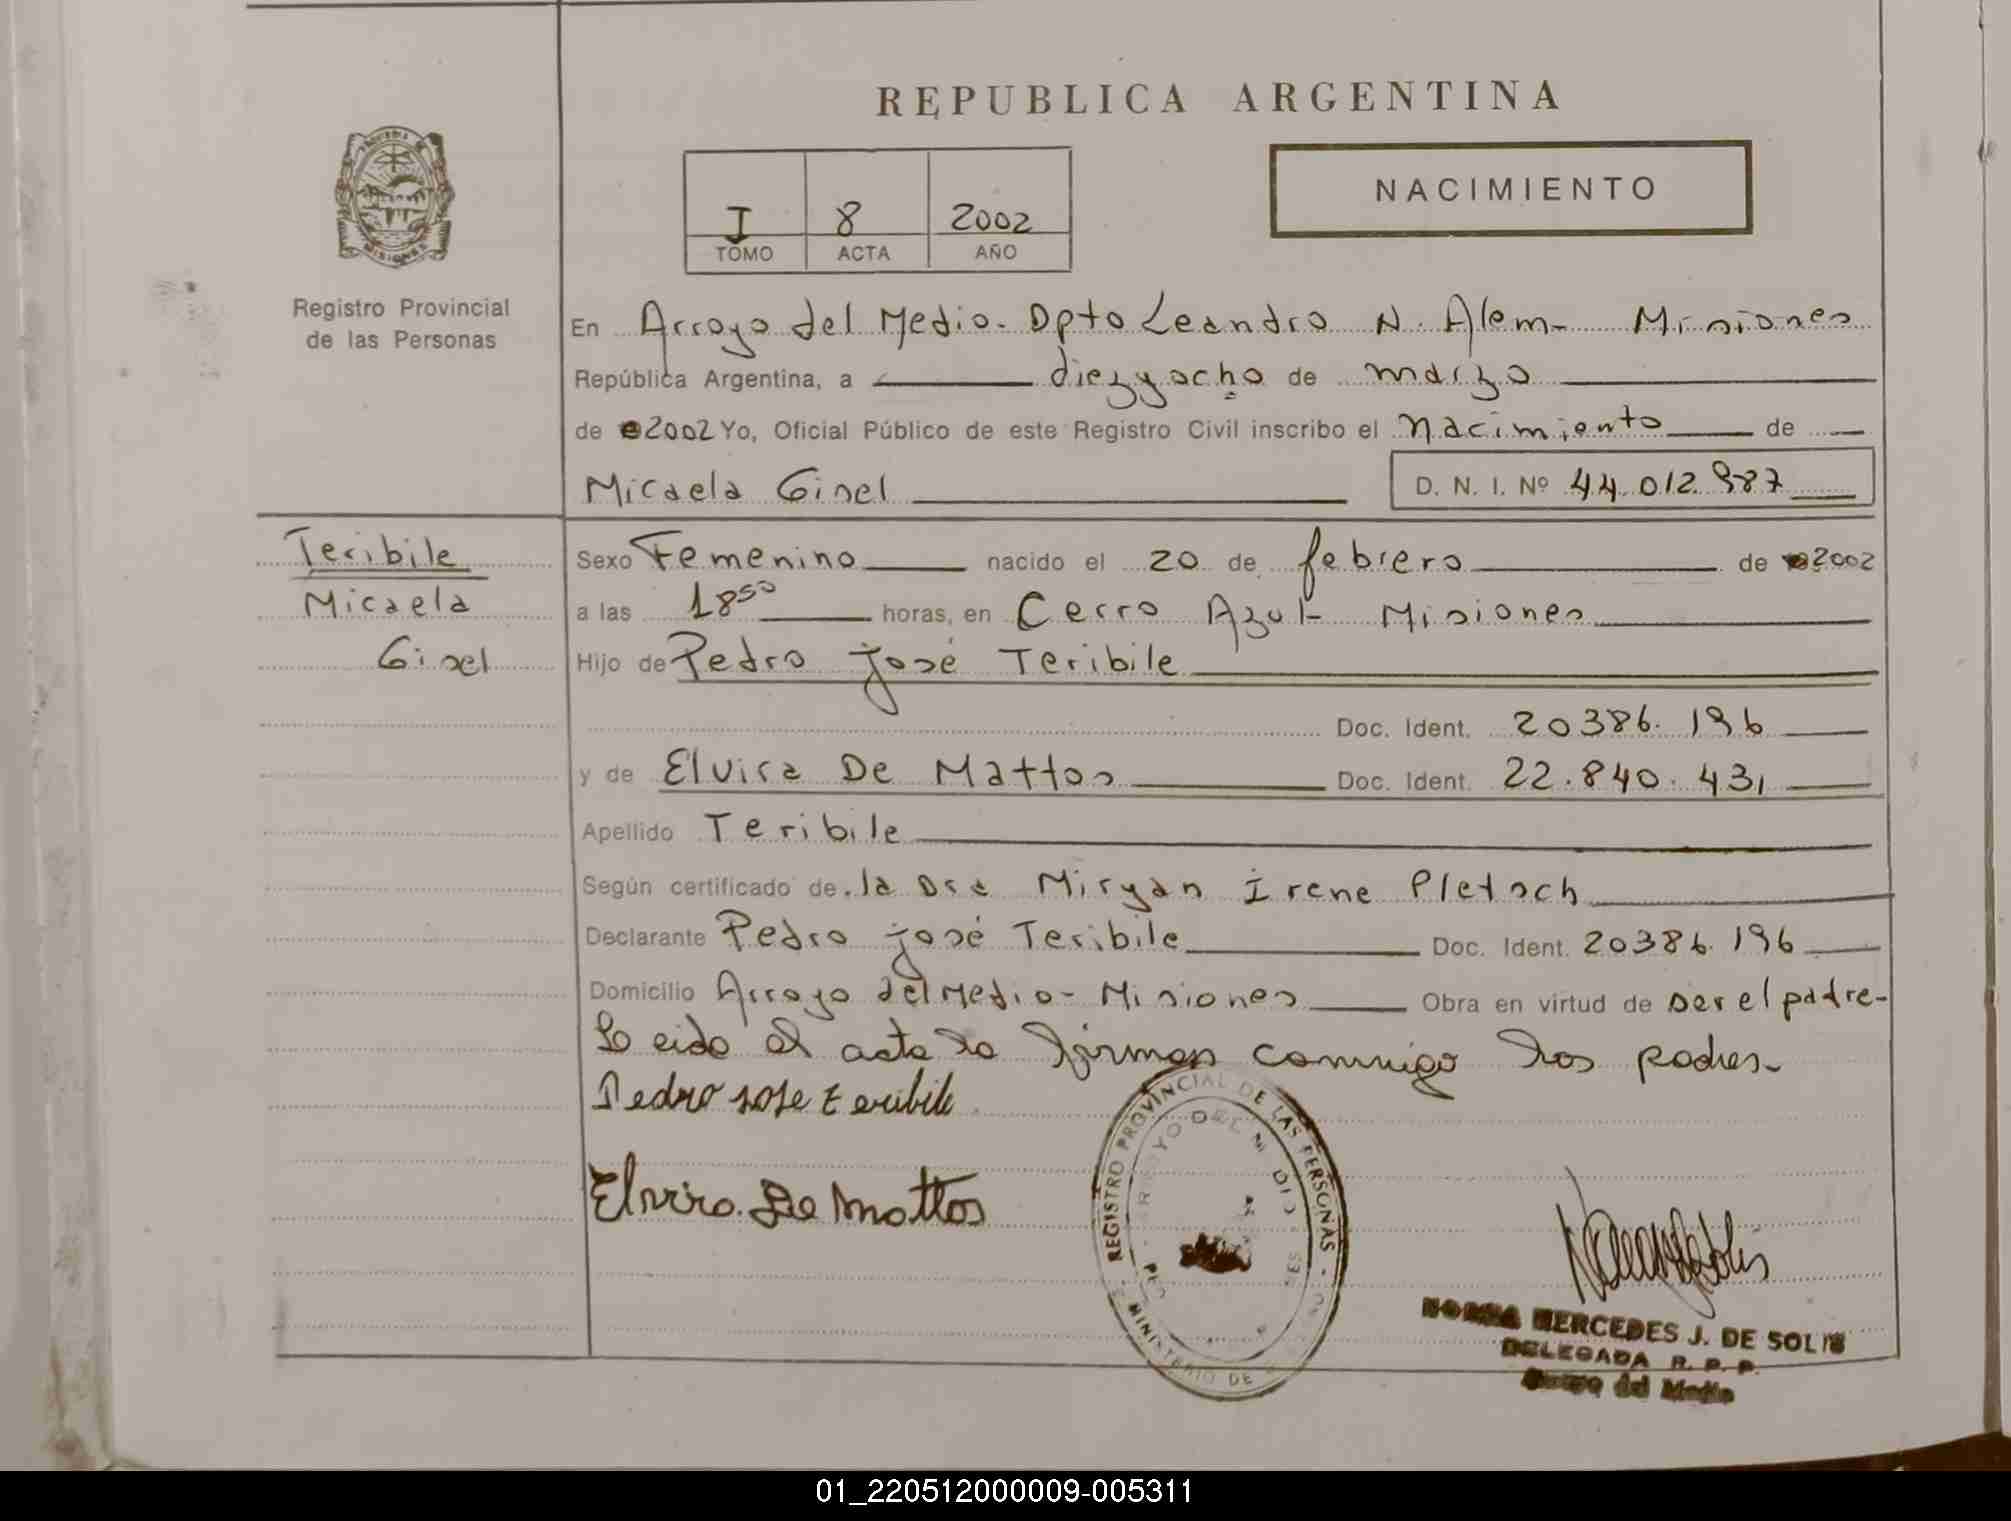 REPUBLICA ARGENTINA
NACIMIENTO
I 8 2002
TOMO ACTA AÑO
MISIONES
Registro Provincial
de las Personas
En Arroyo del Medio - Dpto Leandro N. Alem - Misiones
República Argentina, a diezyocho de marzo
de 2002 Yo, Oficial Público de este Registro Civil inscribo el Nacimiento de
Micaela Gisel D. N. I. Nº 44.012.987
Teribile
Micaela
Gisel
Sexo Femenino nacido el 20 de febrero de 2002
a las 18⁵⁰ horas, en Cerro Azul - Misiones
Hijo de Pedro José Teribile
Doc. Ident. 20386.196
y de Elvira De Mattos Doc. Ident. 22.840.431
Apellido Teribile
Según certificado de la Dra Miryan Irene Pletsch
Declarante Pedro José Teribile Doc. Ident. 20386.196
Domicilio Arroyo del Medio - Misiones Obra en virtud de ser el padre-
Leido el acta la firman conmigo los padres-
Pedro Jose Teribile
Elvira De Mattos
REGISTRO PROVINCIAL DE LAS PERSONAS
MINISTERIO DE
NORMA MERCEDES J. DE SOLIS
DELEGADA R. P. P.
Arroyo del Medio
01_220512000009-005311